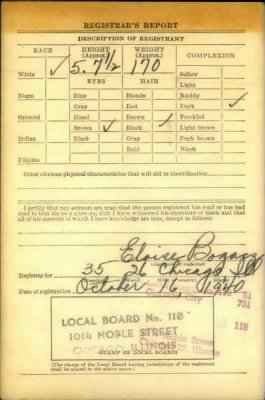 REGISTRAR'S REPORT
DESCRIPTION OF REGISTRANT
RACE HEIGHT (Approx.) WEIGHT (Approx.) COMPLEXION
White ✓ 5. 7 1/2 170 Sallow
EYES HAIR Light
Negro Blue Blonde Ruddy
Gray Red Dark ✓
Oriental Hazel Brown Freckled
Brown ✓ Black ✓ Light brown
Indian Black Gray Dark brown
Bald Black
Filipino
Other obvious physical characteristics that will aid in identification
I certify that my answers are true; that the person registered has read or has had
read to him his own answers; that I have witnessed his signature or mark and that
all of his answers of which I have knowledge are true, except as follows:
Eloise
Registrar for 35 26 Chicago Ill
Date of registration October 16, 1940
LOCAL BOARD No. 118
1014 NOBLE STREET
CHICAGO ILLINOIS
118
STAMP OF LOCAL BOARD
(The stamp of the Local Board having jurisdiction of the registrant
shall be placed in the above space.)